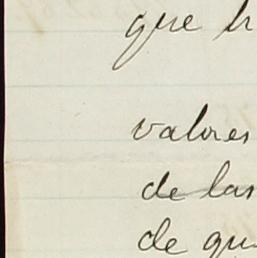 que
valores
de las
de